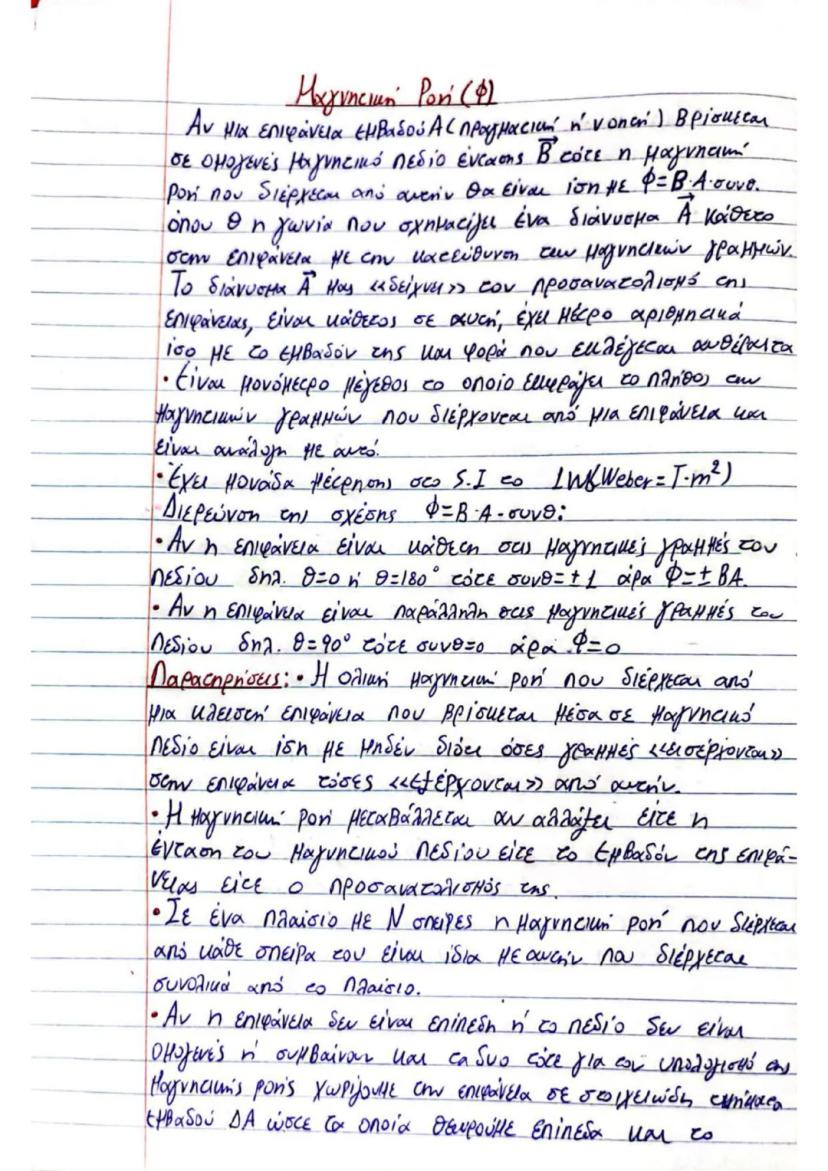 Μαγνητική Ροή (Φ)
Αν μια επιφάνεια εμβαδού Α (πραγματική ή νοητή) βρίσκεται
σε ομογενές μαγνητικό πεδίο έντασης B⃗ τότε η μαγνητική
ροή που διέρχεται από αυτήν θα είναι ίση με Φ=Β·Α·συνθ.
όπου θ η γωνία που σχηματίζει ένα διάνυσμα A⃗ κάθετο
στην επιφάνεια με την κατεύθυνση των μαγνητικών γραμμών.
Το διάνυσμα A⃗ μας «δείχνει» τον προσανατολισμό της
επιφάνειας, είναι κάθετος σε αυτή, έχει μέτρο αριθμητικά
ίσο με το εμβαδόν της και φορά που εκλέγεται αυθέραιτα
• Είναι μονόμετρο μέγεθος το οποίο εκφράζει το πλήθος των
μαγνητικών γραμμών που διέρχονται από μια επιφάνεια και
είναι ανάλογη με αυτό.
• Έχει μονάδα μέτρησης στο S.I το 1W(Weber=T·m²)
Διερεύνση της σχέσης Φ=Β·Α·συνθ:
• Αν η επιφάνεια είναι κάθετη στις μαγνητικές γραμμές του
πεδίου δηλ. θ=0 ή θ=180° τότε συνθ=±1 άρα Φ=±ΒΑ.
• Αν η επιφάνεια είναι παράλληλη στις μαγνητικές γραμμές του
πεδίου δηλ. θ=90° τότε συνθ=0 άρα Φ=0
Παρατηρήσεις: • Η ολική μαγνητική ροή που διέρχεται από
μια κλειστή επιφάνεια που βρίσκεται μέσα σε μαγνητικό
πεδίο είναι ίση με μηδέν διότι όσες γραμμές «εισέρχονται»
στην επιφάνεια τόσες «εξέρχονται» από αυτήν.
• Η μαγνητική ροή μεταβάλλεται αν αλλάξει είτε η
ένταση του μαγνητικού πεδίου είτε το εμβαδόν της επιφά-
νειας είτε ο προσανατολισμός της.
• Σε ένα πλαίσιο με Ν σπείρες η μαγνητική ροή που διέρχεται
από κάθε σπείρα του είναι ίδια με αυτήν που διέρχεται
συνολικά από το πλαίσιο.
• Αν η επιφάνεια δεν είναι επίπεδη ή το πεδίο δεν είναι
ομογενές ή συμβαίνουν και τα δυο τότε για τον υπολογισμό της
μαγνητικής ροής χωρίζουμε την επιφάνεια σε στοιχειώδη τμήματα
εμβαδού ΔΑ ώστε τα οποία θεωρούμε επίπεδα και το